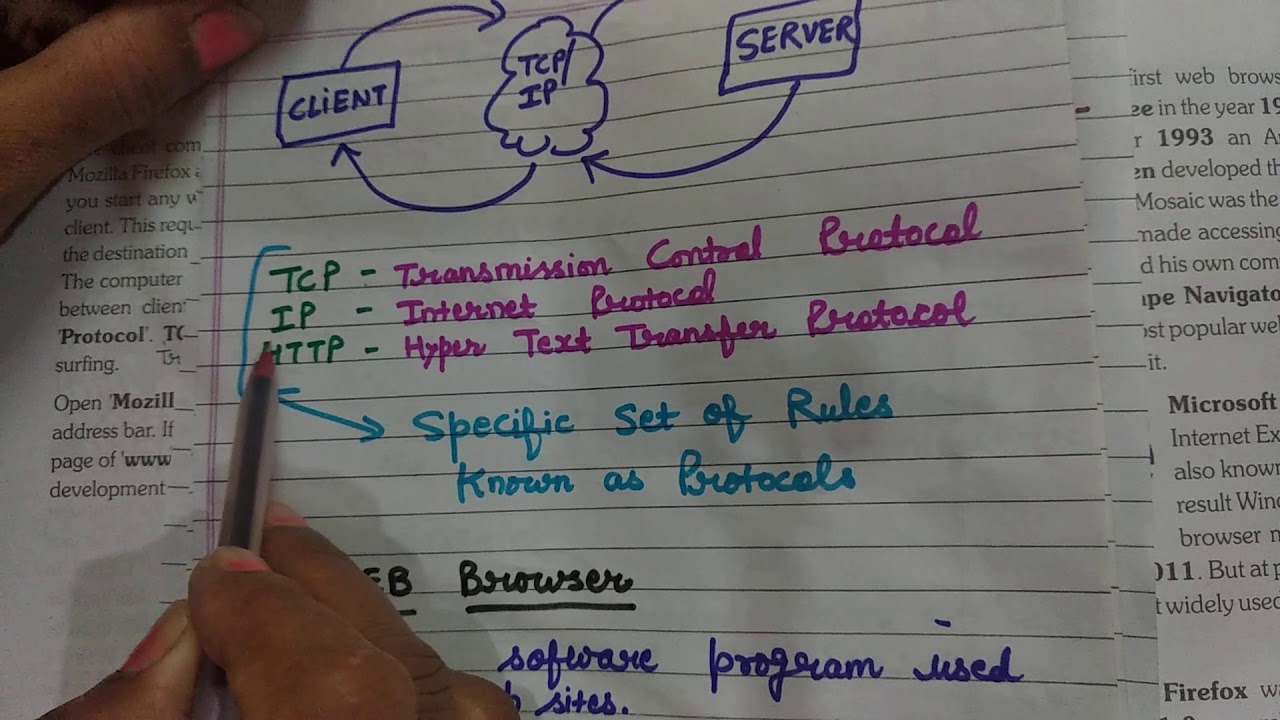 CLiENT
TCP/
IP
SERVER
TCP - Transmission Control Protocol
IP - Internet Protocol
HTTP - Hyper Text Transfer Protocol
Specific Set of Rules
Known as Protocols
EB Browser
sofware program used
sites.
client com
Mozilla Firefox
you start any
client. This requ
the destination
The computer
between clien
'Protocol'. TC
surfing.
Open 'Mozill
address bar. If
page of 'www
development
irst web brows
ee in the year 19
r 1993 an A
en developed th
Mosaic was the
made accessing
d his own com
ape Navigato
ost popular we
it.
Microsoft
Internet Ex
also known
result Wind
browser m
011. But at p
t widely used
Firefox w